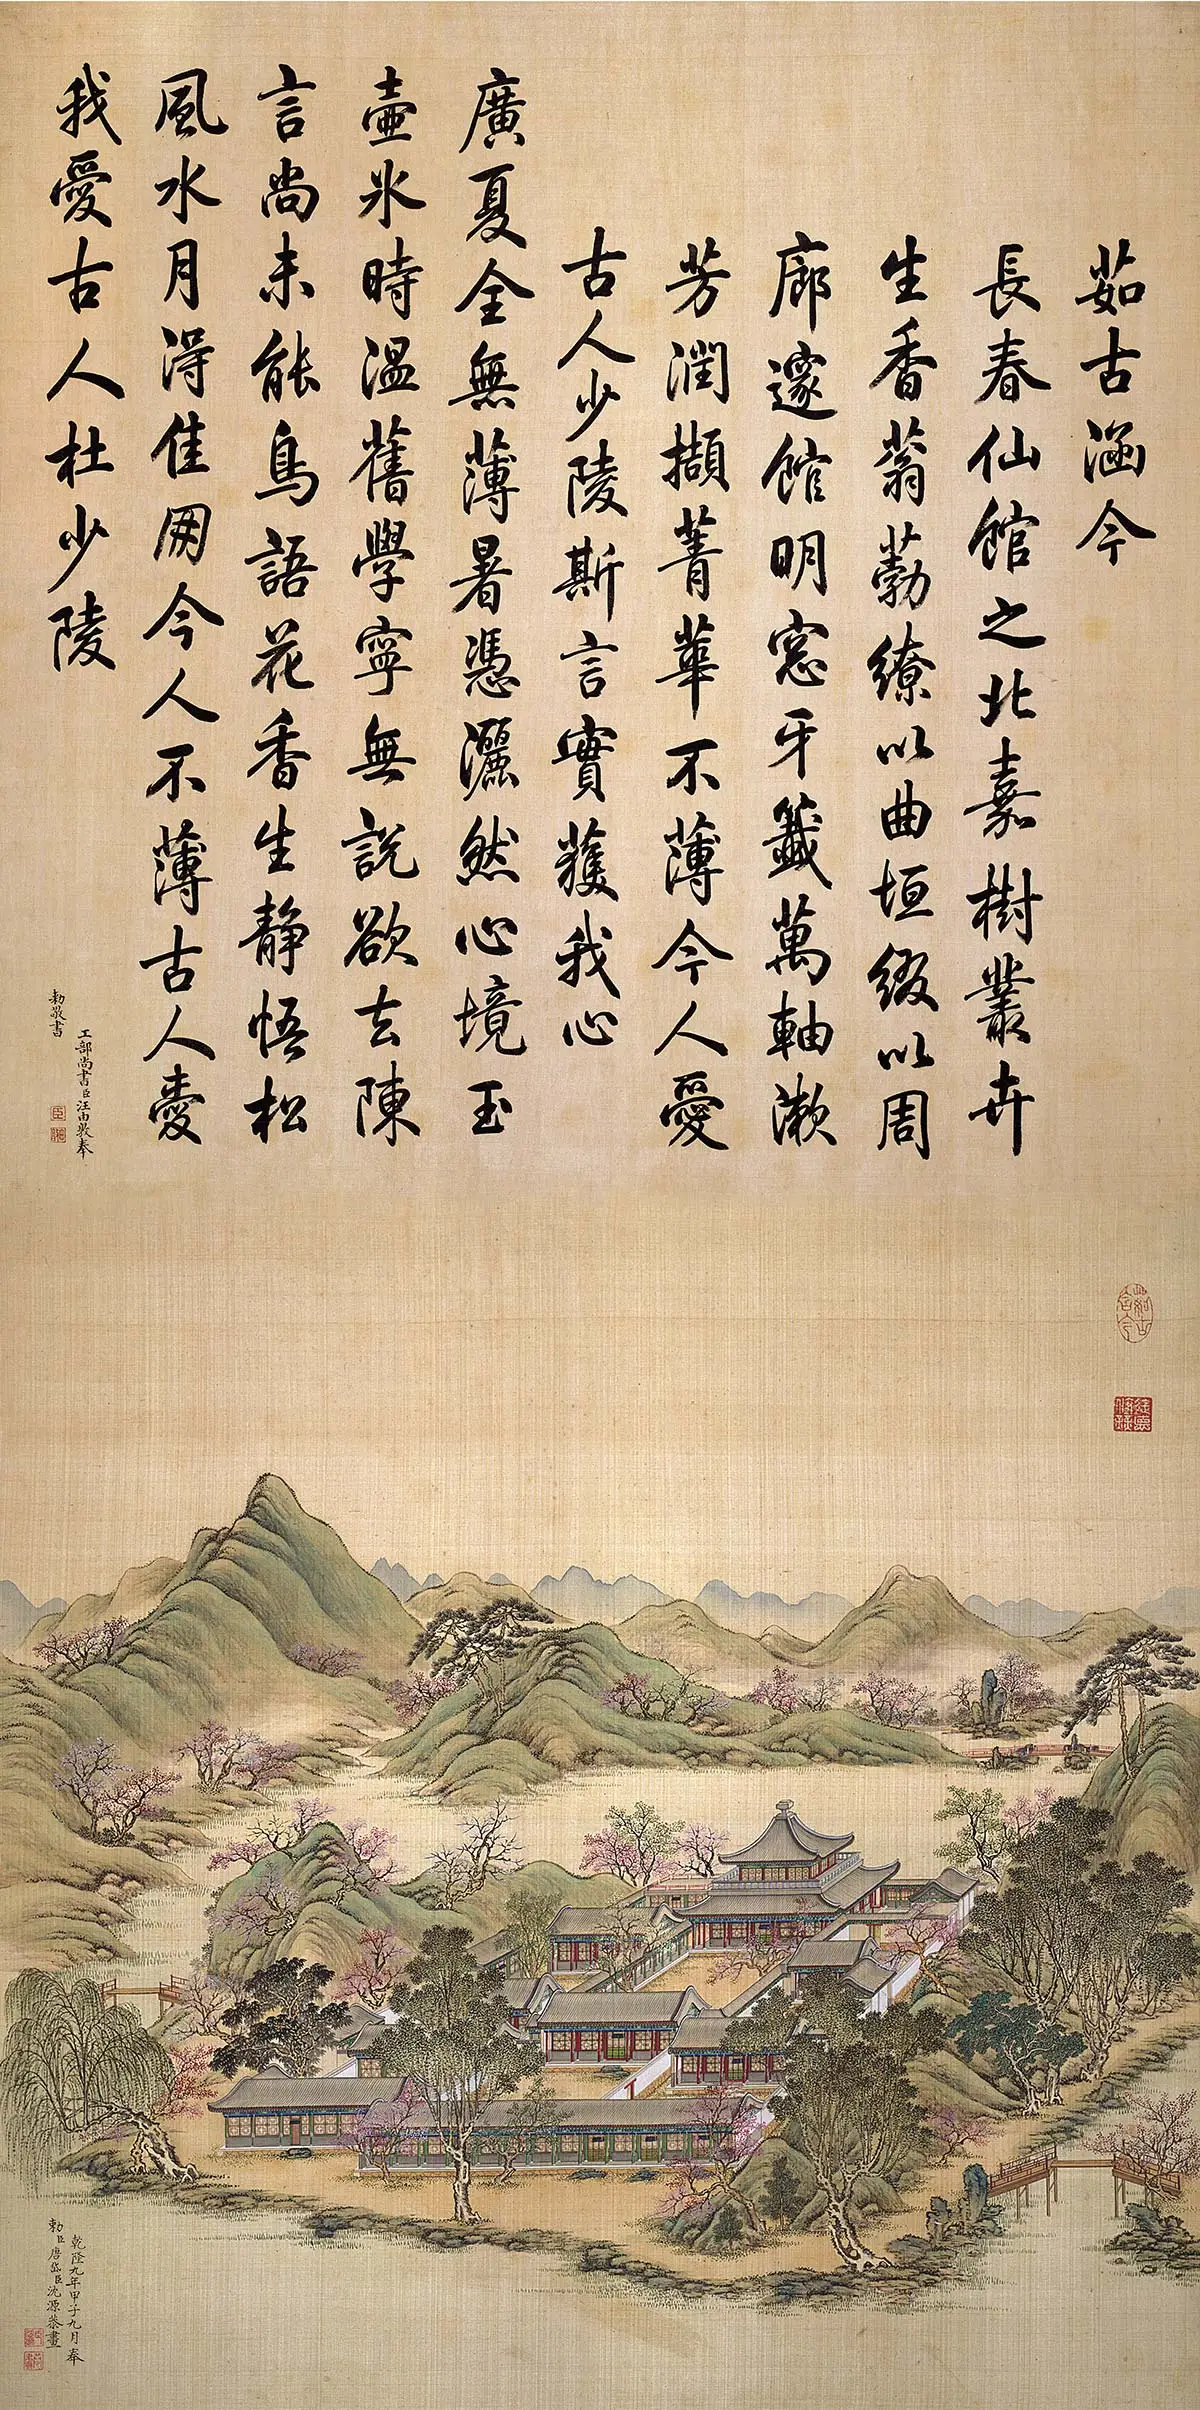 茹古涵今
長春仙館之北嘉樹叢卉
生香蓊葧繚以曲垣綴以周
廊邃館明窓牙籤萬軸漱
芳潤擷菁華不薄今人愛
古人少陵斯言實獲我心
廣夏全無薄暑憑灑然心境玉
壺冰時溫舊學寧無說欲去陳
言尚未能鳥語花香生靜悟松
風水月得佳朋今人不薄古人愛
我愛古人杜少陵
工部尚書臣汪由敦奉
勅敬書
乾隆九年甲子九月奉
勅臣唐岱臣沈源恭畫